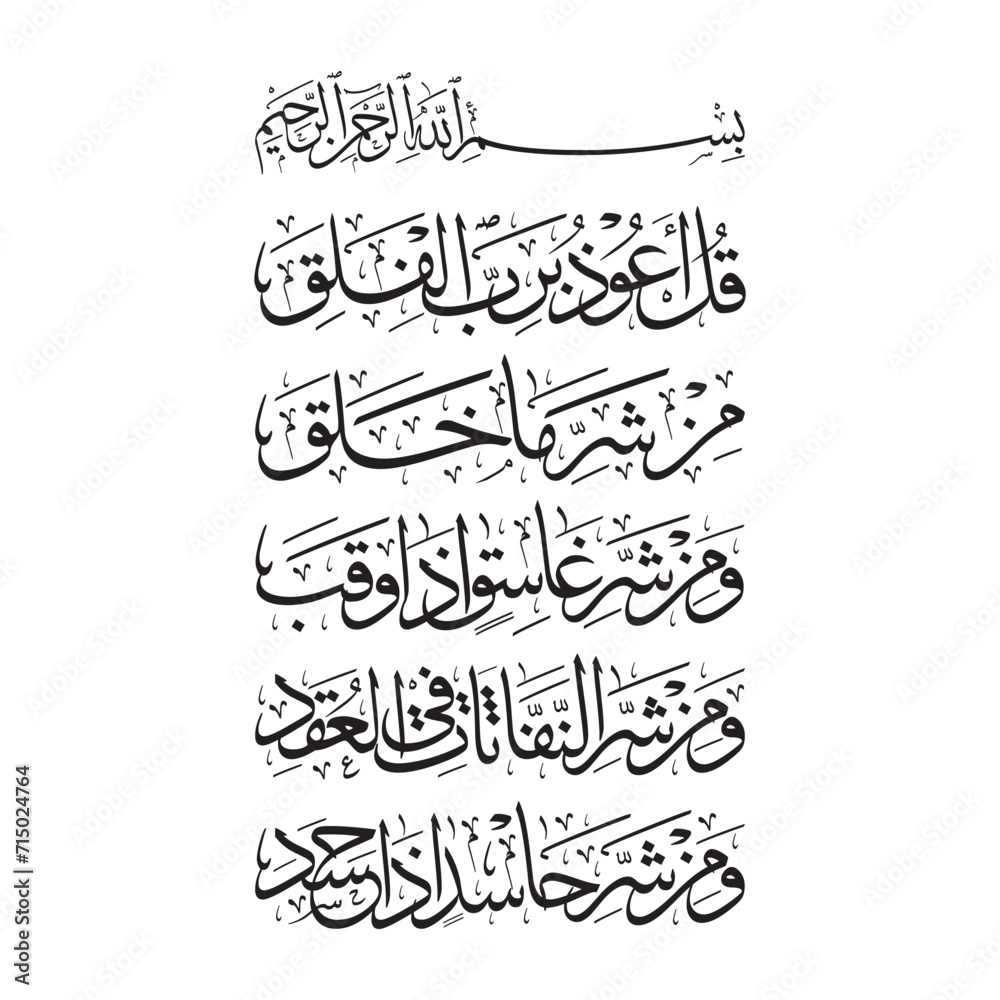 بِسْمِ ٱللَّهِ ٱلرَّحْمَٰنِ ٱلرَّحِيمِ
قُلْ أَعُوْذُ بِرَبِّ الْفَلَقِ
مِنْ شَرِّ مَا خَلَقَ
وَمِنْ شَرِّ غَاسِقٍ إِذَا وَقَبَ
وَمِنْ شَرِّ النَّفَّاثَاتِ فِي الْعُقَدِ
وَمِنْ شَرِّ حَاسِدٍ إِذَا حَسَدَ
Adobe Stock | #715024764